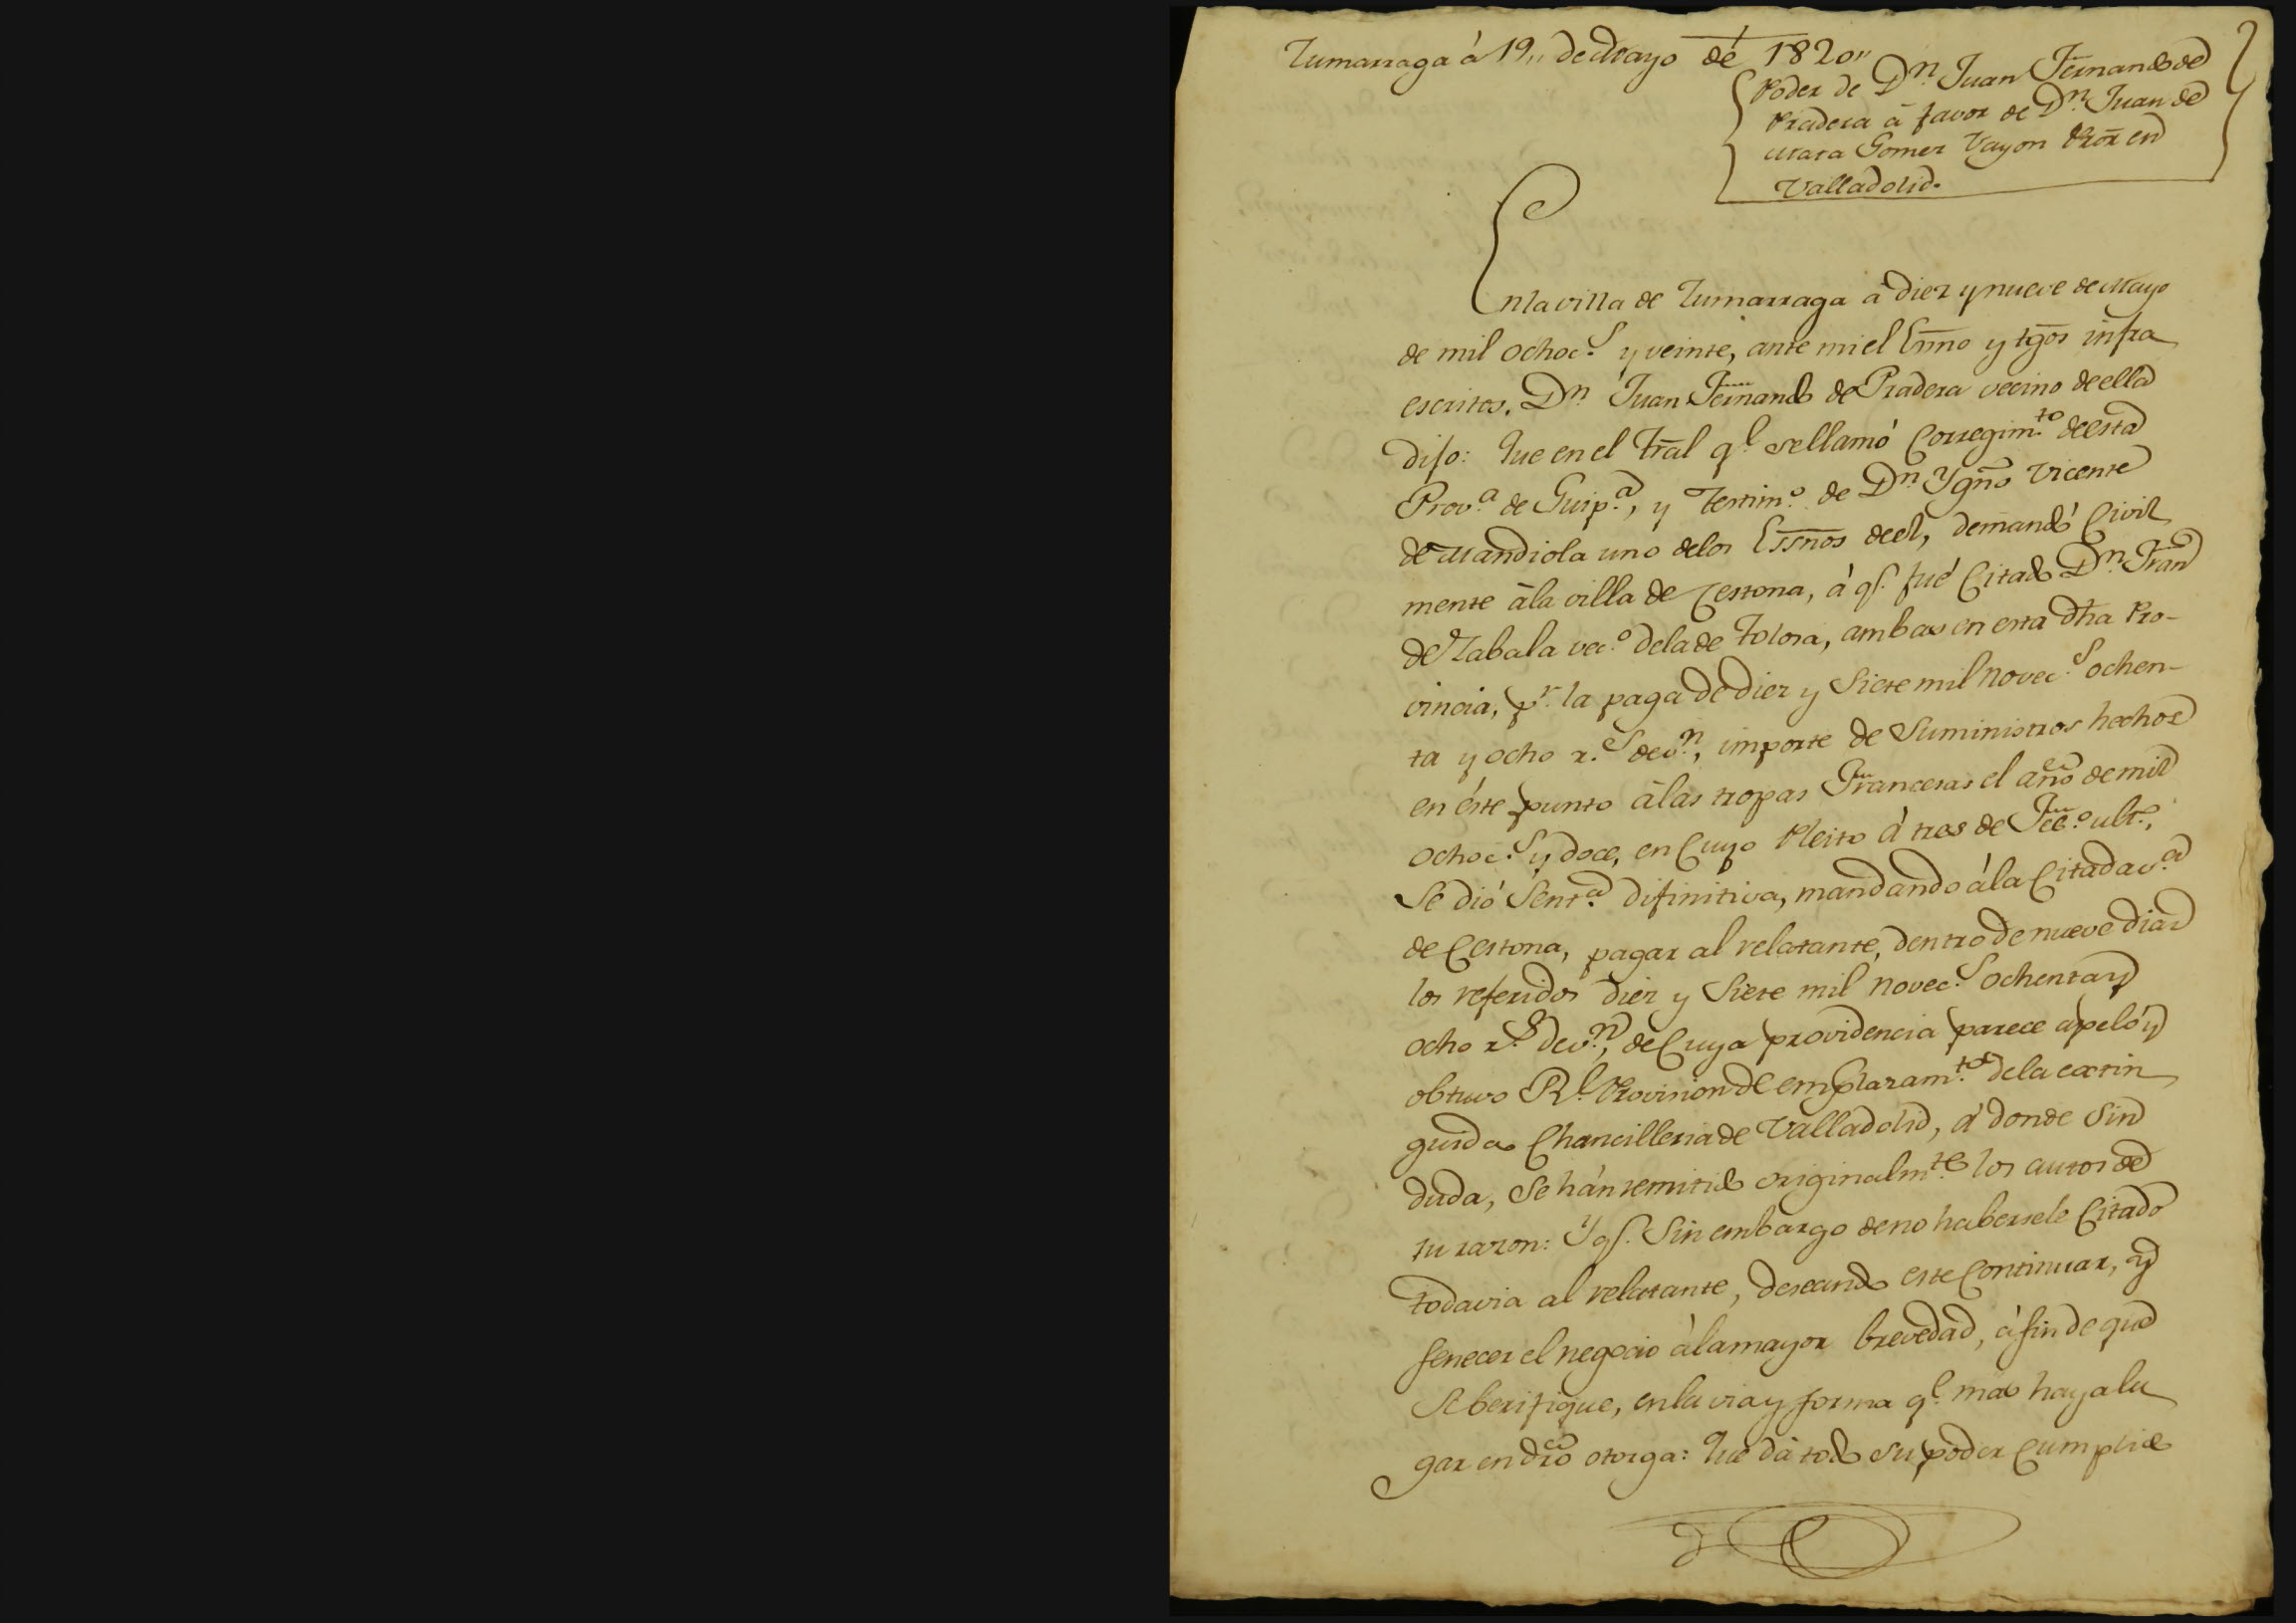 Zumarraga á 19,, de Mayo de 1820,,
Poder de Dn. Juan Fernando de
Pradera á favor de Dn. Juan de
Mata Gomez Vayon Pror. en
Valladolid.
En la villa de Zumarraga á diez y nueve de Mayo
de mil ochoc.s y veinte, ante mi el Essno y tgos infra
escritos, Dn. Juan Fernando de Pradera vecino de ella
dijo: Que en el Tral q.e se llamó Corregim.to de esta
Prov.a de Guip.a, y Testim.o de Dn. Ygno Vicente
de Mandiola uno de los Essnos de el, demandó Civil
mente á la villa de Cestona, á q.e fué Citado Dn. Fran
de Zabala vec.o de la de Tolosa, ambas en esta dha Pro-
vincia, p.r la paga de diez y Siete mil novec.s ochen-
ta y ocho r.s de v.n, importe de Suministros hechos
en éste punto á las tropas Francesas el año de mil
ochoc.s y doce, en Cuyo Pleito á tres de Feb.o ult.o,
Se dió Sent.a difinitiva, mandando á la Citada v.a
de Cestona, pagar al relatante, dentro de nueve dias
los referidos diez y Siete mil novec.s ochenta y
ocho r.s de v.n, de Cuya providencia parece apeló y
obtuvo R.l Provision de emplazam.to de la extin
guida Chancilleria de Valladolid, á donde Sin
duda, Se hán remitido originalm.te los autos de
su razon: Y q.e Sin embargo de no habersele Citado
todavia al relatante, deseando este Continuar, y
fenecer el negocio á la mayor brevedad, á fin de que
Se berifique, en la via y forma q.e mas haya lu
gar en dro otorga: Que dá todo su poder Cumplido